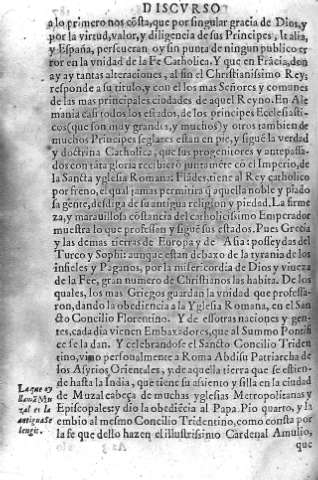 DISCVRSO
a lo primero nos cõsta, que por singular gracia de Dios, y
por la virtud, valor, y diligencia de sus Principes, Italia,
y España, perseueran oy sin punta de ningun publico er
ror en la vnidad de la Fe Catholica. Y que en Frãcia, don
ay ay tantas alteraciones, al fin el Christianissimo Rey;
responde a su titulo, y con el los mas Señores y comunes
de las mas principales ciudades de aquel Reyno. En Ale
mania casi todos los estados, de los principes Ecclesiasti
cos (que son muy grandes, y muchos) y otros tambien de
muchos Principes seglares estan en pie, y siguẽ la verdad
y doctrina Catholica, que sus progenitores y antepassa
dos con tãta gloria recibierõ juntamẽte cõ el Imperio, de
la Sancta yglesia Romana: Flãdes, tiene al Rey catholico
por freno, el qual jamas permitira q̃ aquella noble y piado
sa gente, desdiga de su antigua religion y piedad. La firme
za, y marauillosa cõstancia del catholicissimo Emperador
muestra lo que professan y siguẽ sus estados. Pues Grecia
y las demas tierras de Europa y de Asia: posseydas del
Turco y Sophi: aunque estan debaxo de la tyrania de los
infieles y Paganos, por la misericordia de Dios y viueza
de la Fee, gran numero de Christianos las habita. De los
quales, los mas Griegos guardan la vnidad que professa-
ron, dando la obediencia a la Yglesia Romana, en el San
cto Concilio Florentino. Y de essotras naciones y gen-
tes, cada dia vienen Embaxadores, que al Summo Pontifi
ce se la dan. Y celebrandose el Sancto Concilio Triden
tino, vino personalmente a Roma Abdisu Patriarcha de
los Assyrios Orientales, y de aquella tierra que se estien-
de hasta la India, que tiene su assiento y silla en la ciudad
de Muzal cabeça de muchas yglesias Metropolitanas y
Episcopales: y dio la obediẽcia al Papa Pio quarto, y la
embio al mesmo Concilio Tridentino, como consta por
la fe que dello haze n el illustrissimo Cardenal Amulio,
que
La que oy
llamã Mu
zal es la
antigua Se
leugie.